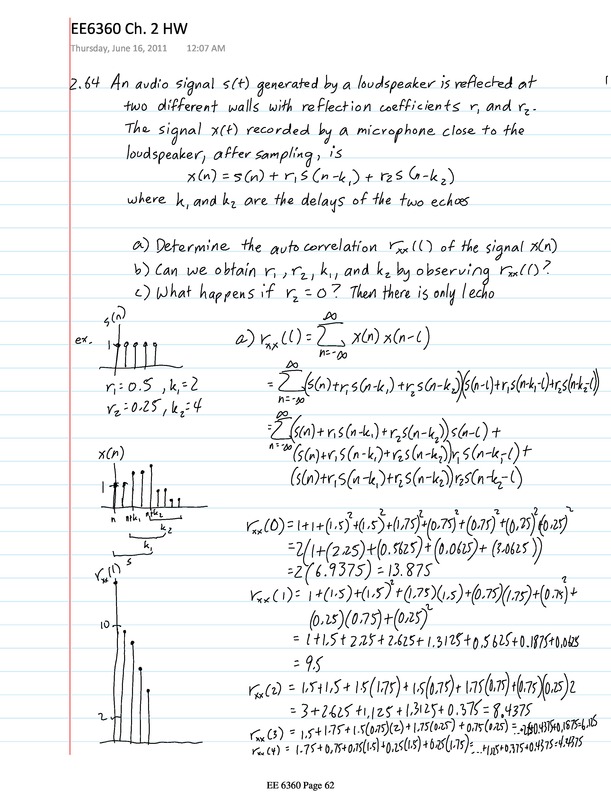 EE6360 Ch. 2 HW
Thursday, June 16, 2011 12:07 AM
1
2.64 An audio signal s(t) generated by a loudspeaker is reflected at
two different walls with reflection coefficients r₁ and r₂.
The signal x(t) recorded by a microphone close to the
loudspeaker, after sampling, is
x(n) = s(n) + r₁s(n-k₁) + r₂s(n-k₂)
where k₁ and k₂ are the delays of the two echoes
a) Determine the autocorrelation rₓₓ(l) of the signal x(n)
b) Can we obtain r₁, r₂, k₁, and k₂ by observing rₓₓ(l)?
c) What happens if r₂=0? Then there is only 1 echo
ex.
s(n)
1
r₁=0.5, k₁=2
r₂=0.25, k₂=4
x(n)
1
n n+k₁ n+k₂
k₂
k₁
s
rₓₓ(l)
10
2
a) rₓₓ(l) = ∑ₙ₌₋∞^∞ x(n) x(n-l)
= ∑ₙ₌₋∞^∞ (s(n)+r₁s(n-k₁)+r₂s(n-k₂))(s(n-l)+r₁s(n-k₁-l)+r₂s(n-k₂-l))
= ∑ₙ₌₋∞^∞ (s(n)+r₁s(n-k₁)+r₂s(n-k₂))s(n-l) +
(s(n)+r₁s(n-k₁)+r₂s(n-k₂))r₁s(n-k₁-l)+
(s(n)+r₁s(n-k₁)+r₂s(n-k₂))r₂s(n-k₂-l)
rₓₓ(0) = 1+1+(1.5)²+(1.5)²+(1.75)²+(0.75)²+(0.75)²+(0.25)²+(0.25)²
=2(1+(2.25)+(0.5625)+(0.0625)+(3.0625))
=2(6.9375)=13.875
rₓₓ(1) = 1+(1.5)+(1.5)²+(1.75)(1.5)+(0.75)(1.75)+(0.75)²+
(0.25)(0.75)+(0.25)²
= 1+1.5+2.25+2.625+1.3125+0.5625+0.1875+0.0625
= 9.5
rₓₓ(2) = 1.5+1.5+1.5(1.75)+1.5(0.75)+1.75(0.75)+(0.75)(0.25)2
= 3+2.625+1.125+1.3125+0.375=8.4375
rₓₓ(3) = 1.5+1.75+1.5(0.75)(2)+1.75(0.25)+0.75(0.25)
rₓₓ(4) = 1.75+0.75+0.75(1.5)+0.25(1.5)+0.25(1.75)=...+1.125+0.375+0.4375=4.4375
EE 6360 Page 62